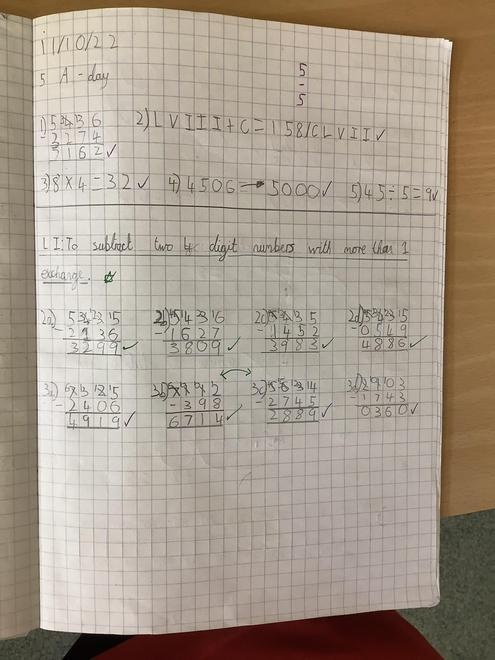 11/10/22
5
5 A-day
-
5
1) 5 3 6 2) LVIII+C=158/CLVIII ✓
-2274
3162 ✓
3) 8×4=32 ✓ 4) 4506→5000 ✓ 5) 45÷5=9 ✓
LI:To subtract two 4 digit numbers with more than 1
exchange.
2a) 2b) 2c) 2d)
-2136 -1627 -1452 -0549
3299 ✓ 3809 ✓ 3983 ✓ 4886 ✓
3a) 3b) 3c) 3d)
-2406 -398 -2745 -1743
4919 ✓ 6714 ✓ 2889 ✓ 0360 ✓